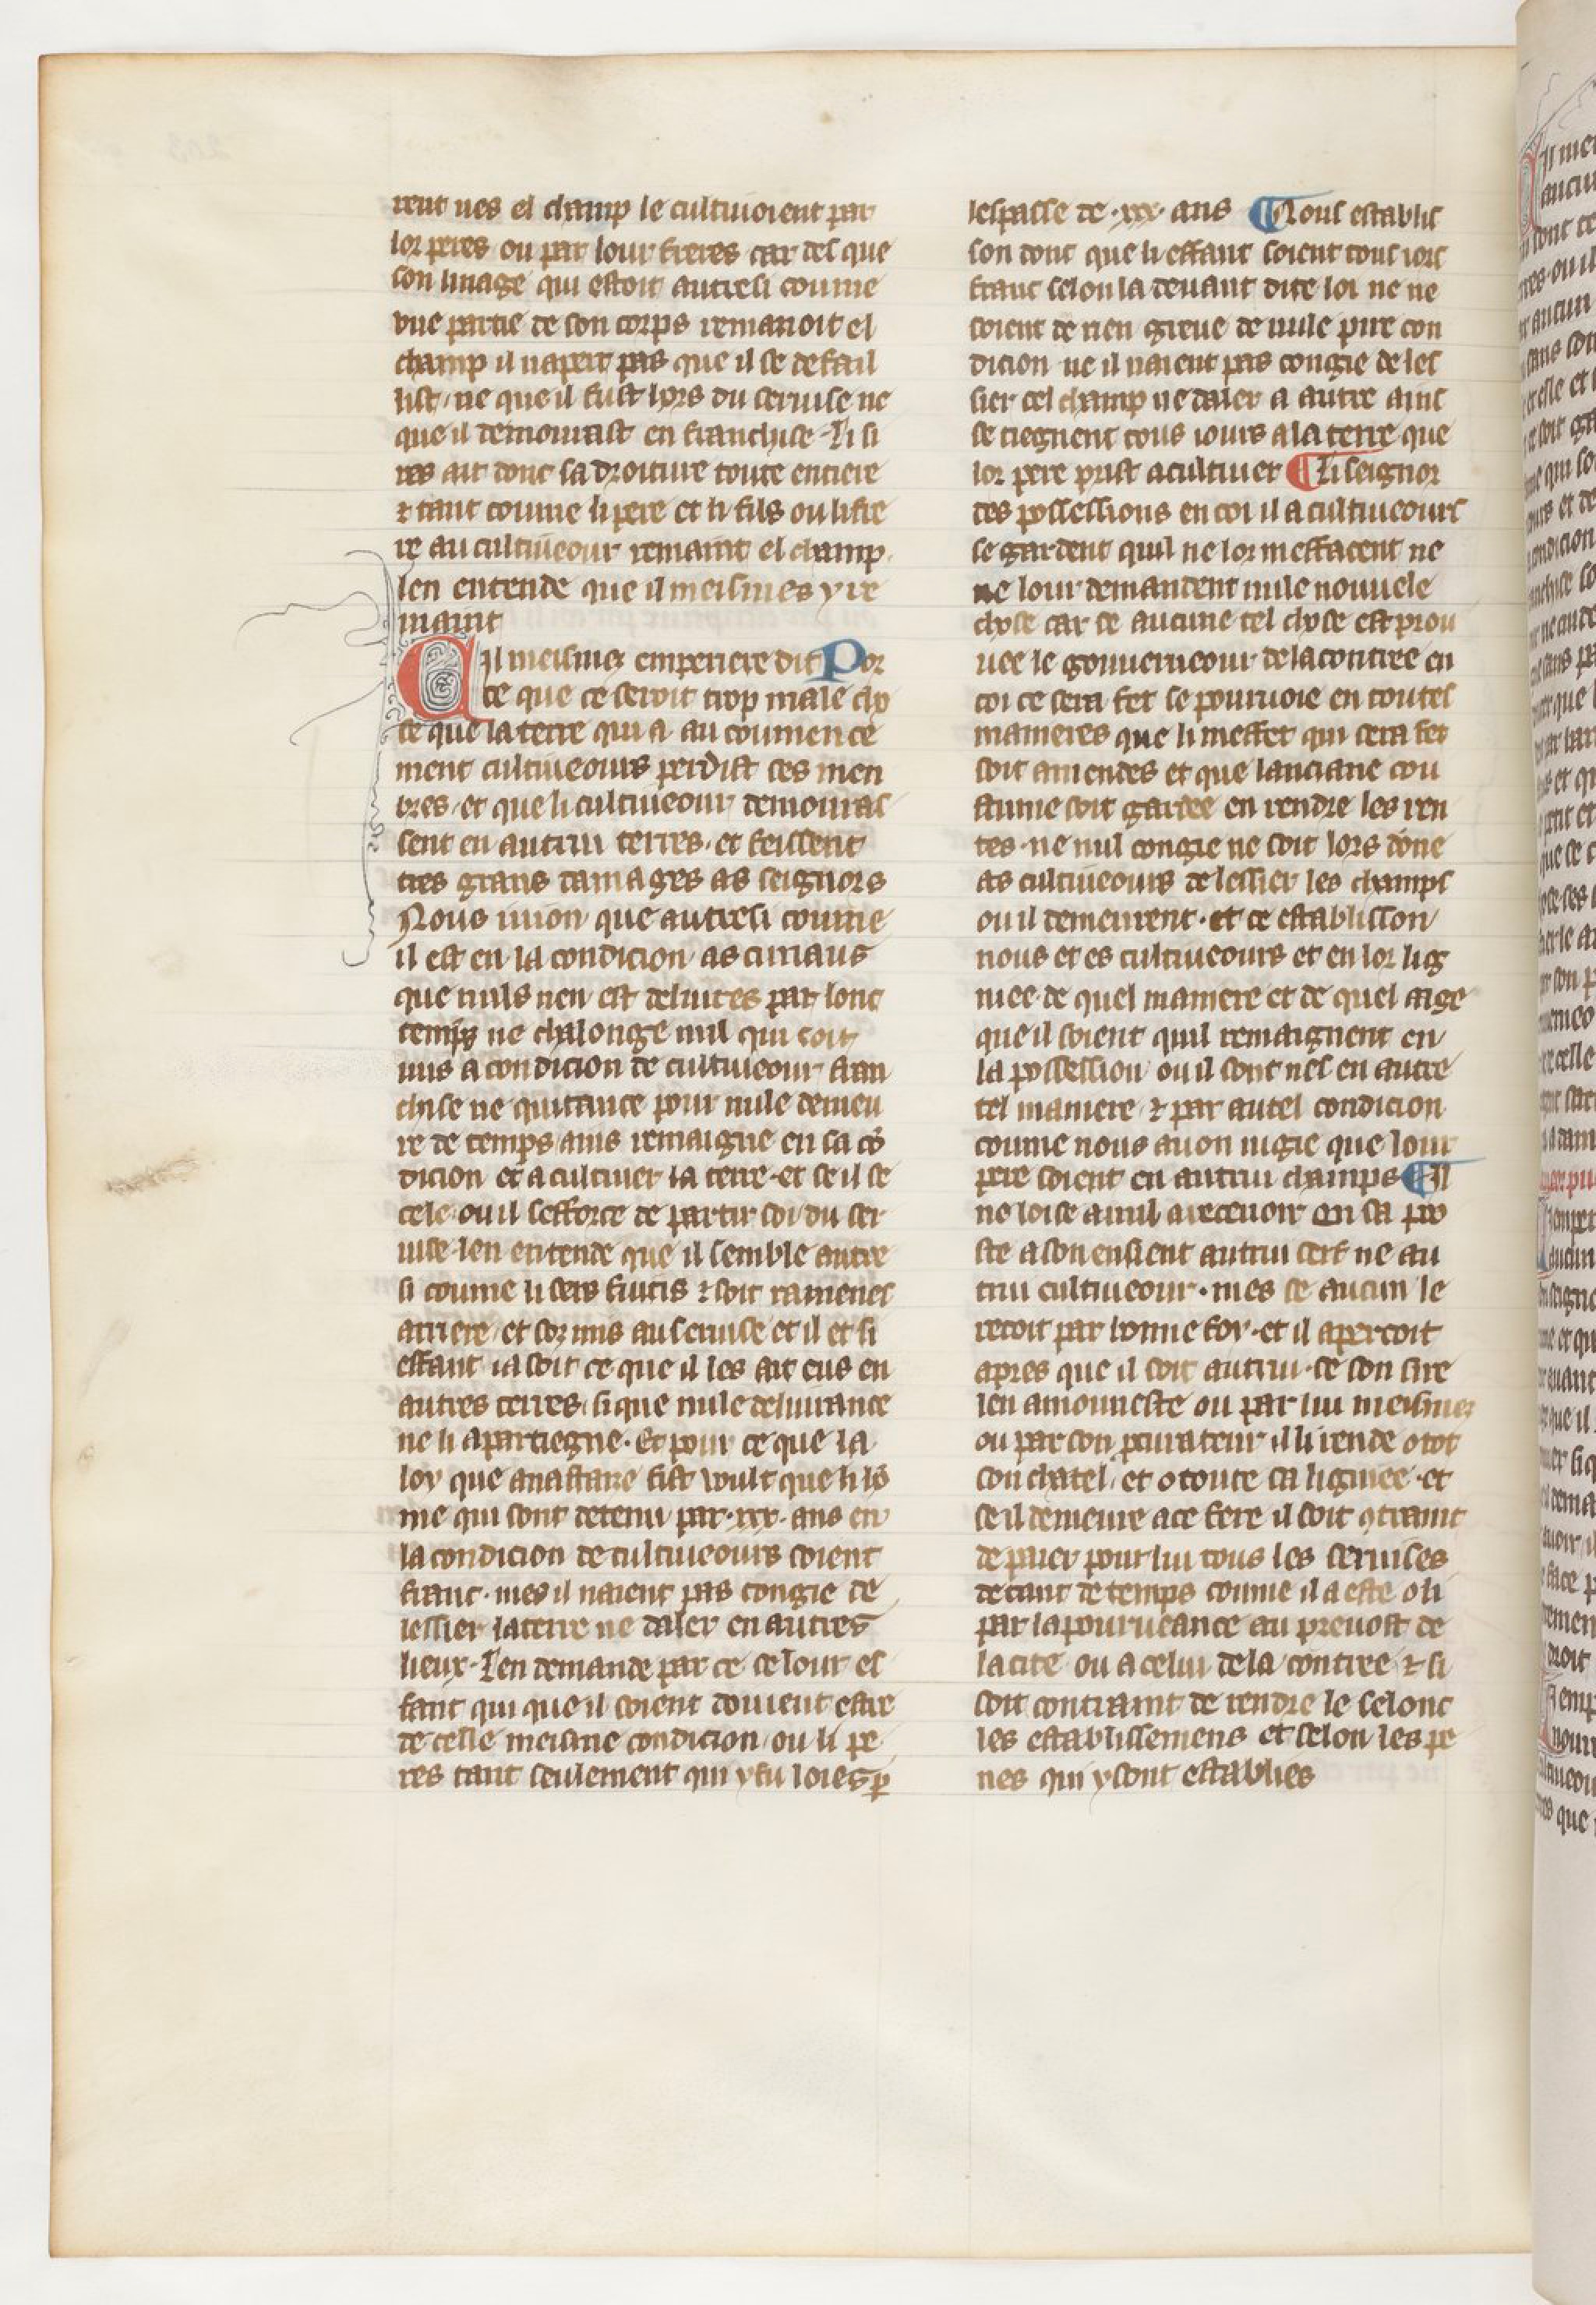 rent ues el champ le cultiuoient par
lor peres ou par lour freres car des que
son linage qui estoit autresi coume
vne partie de son corps remanoit el
champ il napert pas que il se defail
list, ne que il fust lors du seruise ne
que il demourast en franchise. Li si
res ait donc sa droiture toute entiere
⁊ tant coume li pere et li fils ou li fre
re au cultiueour remaint el champ.
len entende que il meismes y re
maint
Cil meismes emperiere dit Por
ce que ce seroit trop male cho
se que la terre qui a au coumence
ment cultiueours perdist ses men
bres, et que li cultiueour demouras
sent en autrui terres, et feissent
tres grans damages as seignors
Nous iuion que autresi coume
il est en la condicion as curiaus
que nuls nen est deliures par lonc
temps ne chalonge nul qui soit
mis a condicion de cultiueour fran
chise ne quitance pour nule demeu
re de temps ains remaigne en sa cō
dicion et a cultiuer la terre. et se il se
cele. ou il sefforce de partir soi du ser
uise. len entende que il semble autre
si coume li sers fuitis ⁊ soit ramenes
arriere, et soz mis au seruise et il et si
effant ia soit ce que il les ait eus en
autres terres, si que nule deliurance
ne li apartiegne. Et pour ce que la
loy que anastaize fist wult que li hō
me qui sont detenu par .xxx. ans en
la condicion de cultiueours soient
franc. mes il naient pas congie de
lessier la terre ne daler en autres
lieux. Len demande par ce se lour ef
fant qui que il soient doiuent estre
de celle meisme condicion, ou li pe
res tant seulement qui y fu loies ꝑ
lespasse de .xxx. ans ¶ Nous establis
son donc que li effant soient touz iors
franc selon la deuant dite loi ne ne
soient de rien greue de nule pire con
dicion ne il naient pas congie de les
sier cel champ ne daler a autre ainc
se tiegnent tous iours a la terre que
lor pere prist a cultiuer ¶ Li seignor
des possessions en coi il a cultiueours
se gardent quil ne lor meffacent ne
ne lour demandent nule nouuele
chose car se aucune tel chose est prou
uee le gouuerneour de la contree en
coi ce sera fet se pouruoie en toutes
manieres que li meffet qui sera fet
soit amendes et que lanciane cou
stume soit gardee en rendre les ren
tes. ne nul congie ne soit lors done
as cultiueours de lessier les champs
ou il demeurent. et ce establisson
nous et es cultiueours et en lor lig
niee de quel maniere et de quel aige
que il soient quil remaignent en
la possession ou il sont nes en autre
tel maniere ⁊ par autel condicion
coume nous auon iugie que lour
pere soient en autrui champs ¶ Il
ne loise a nul a receuoir en sa po
ste a son ensient autrui serf ne au
trui cultiueour. mes se aucun le
recoit par bonne foy. et il apercoit
apres que il soit autrui. se son sire
len amouneste ou par lui meismes
ou par son ꝓcurateur il li rende o tot
son chatel, et o toute sa ligniee. et
se il demeure a ce fere il soit ꝯtraint
de paier pour lui tous les seruises
de tant de temps coume il a este o li
par la pourueance au preuost de
la cite ou a celui de la contree ⁊ si
soit contraint de rendre le selonc
les establissemens et selon les pe
nes qui y sont establies